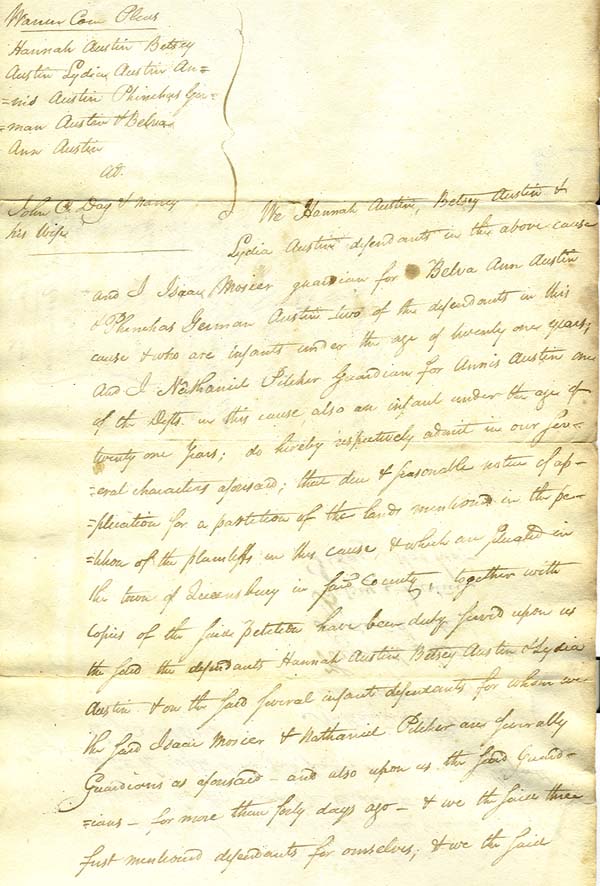 Warren Com Pleas
Hannah Austin Betsey
Austin Lydia Austin An=
=nis Austin Phinehas Ger=
=man Austin & Belva
Ann Austin
ad.
John C. Day & Nancy
his Wife
We Hannah Austin, Betsey Austin &
Lydia Austin defendants in the above cause
and I Isaac Mosier guardian for Belva Ann Austin
& Phinehas German Austin two of the defendants in this
cause & who are infants under the age of twenty one years;
And I Nathaniel Pitcher Guardian for Annis Austin one
of the Defts. in this cause also an infant under the age of
twenty one Years; do hereby respectively admit in our sev=
=eral characters aforesaid; that due & seasonable notice of ap=
=plication for a partition of the lands mentioned in the pe=
=tition of the plaintiffs in this cause & which are situated in
the town of Queensbury in said County, together with
Copies of the said petition have been duly served upon us
the said the defendants Hannah Austin Betsey Austin & Lydia
Austin & on the said several infant defendants for whom we
the said Isaac Mosier & Nathaniel Pitcher are severally
Guardians as aforesaid – and also upon us the said Guard=
=ians – for more than forty days ago – & we the said three
first mentioned defendants for ourselves; & we the said